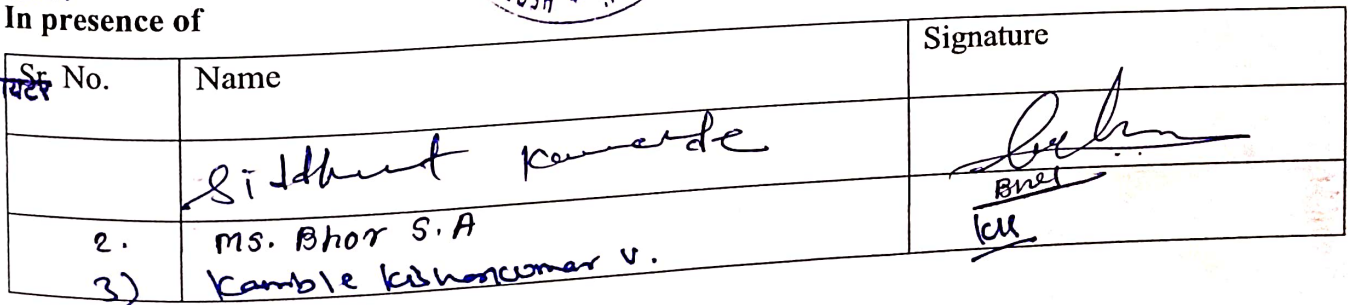 In presence of
Sr. No. Name Signature
Siddhant
2. Ms. Bhor S.A
3) Kamble Kishorkumar V.